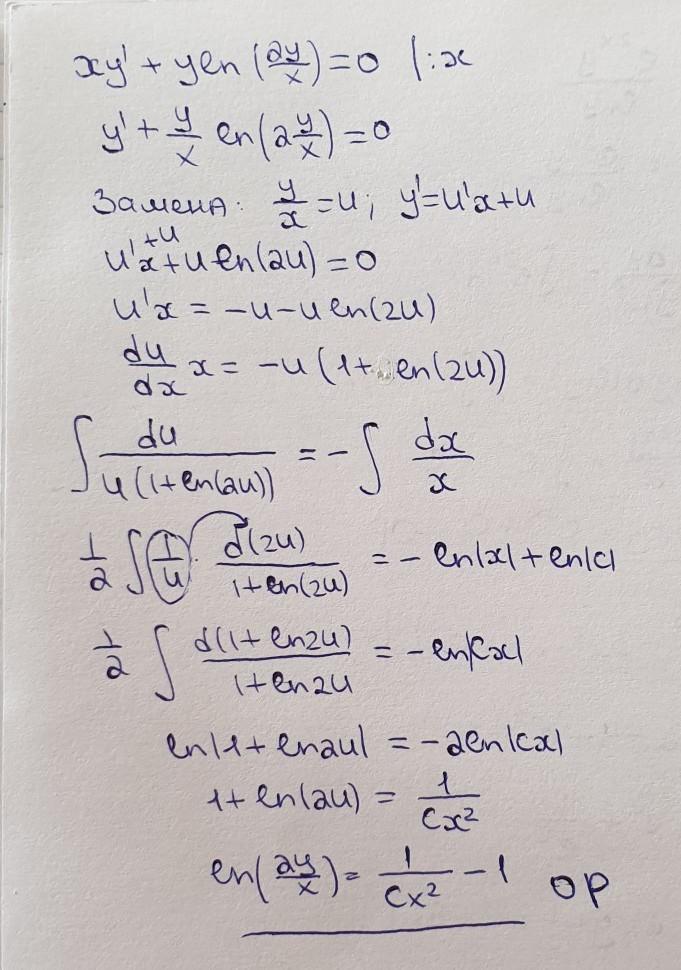 xy' + y ln (2y/x) = 0 |:x
y' + y/x ln(2 y/x) = 0
Замена: y/x = u; y' = u'x + u
u'x + u + u ln(2u) = 0
u'x = -u - u ln(2u)
du/dx x = -u (1 + ln(2u))
∫ du/(u(1+ln(2u))) = -∫ dx/x
1/2 ∫ 1/u · d(2u)/(1+ln(2u)) = -ln|x| + ln|c|
1/2 ∫ d(1+ln2u)/(1+ln2u) = -ln|Cx|
ln|1+ln2u| = -2ln|cx|
1 + ln(2u) = 1/(Cx²)
ln(2y/x) = 1/(Cx²) - 1 ОР